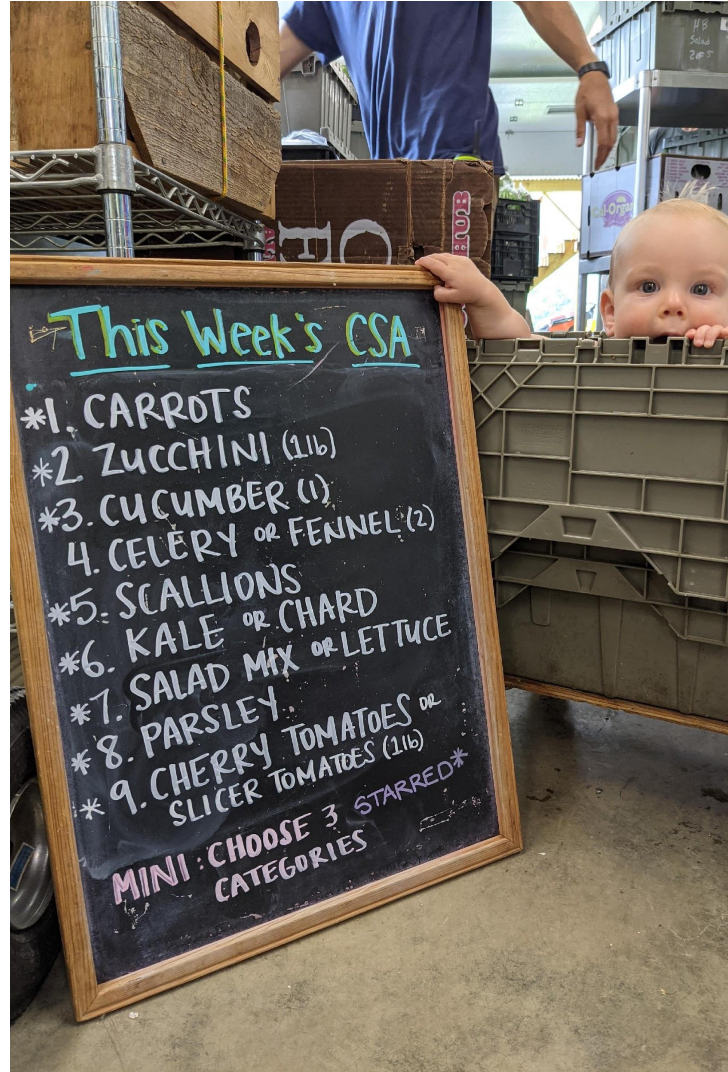 This Week's CSA
*1. CARROTS
*2. ZUCCHINI (1lb)
*3. CUCUMBER (1)
4. CELERY OR FENNEL (2)
*5. SCALLIONS
*6. KALE OR CHARD
*7. SALAD MIX OR LETTUCE
*8. PARSLEY
*9. CHERRY TOMATOES OR
SLICER TOMATOES (1lb)
MINI: CHOOSE 3 STARRED*
CATEGORIES
HB
Salad
2 of 5